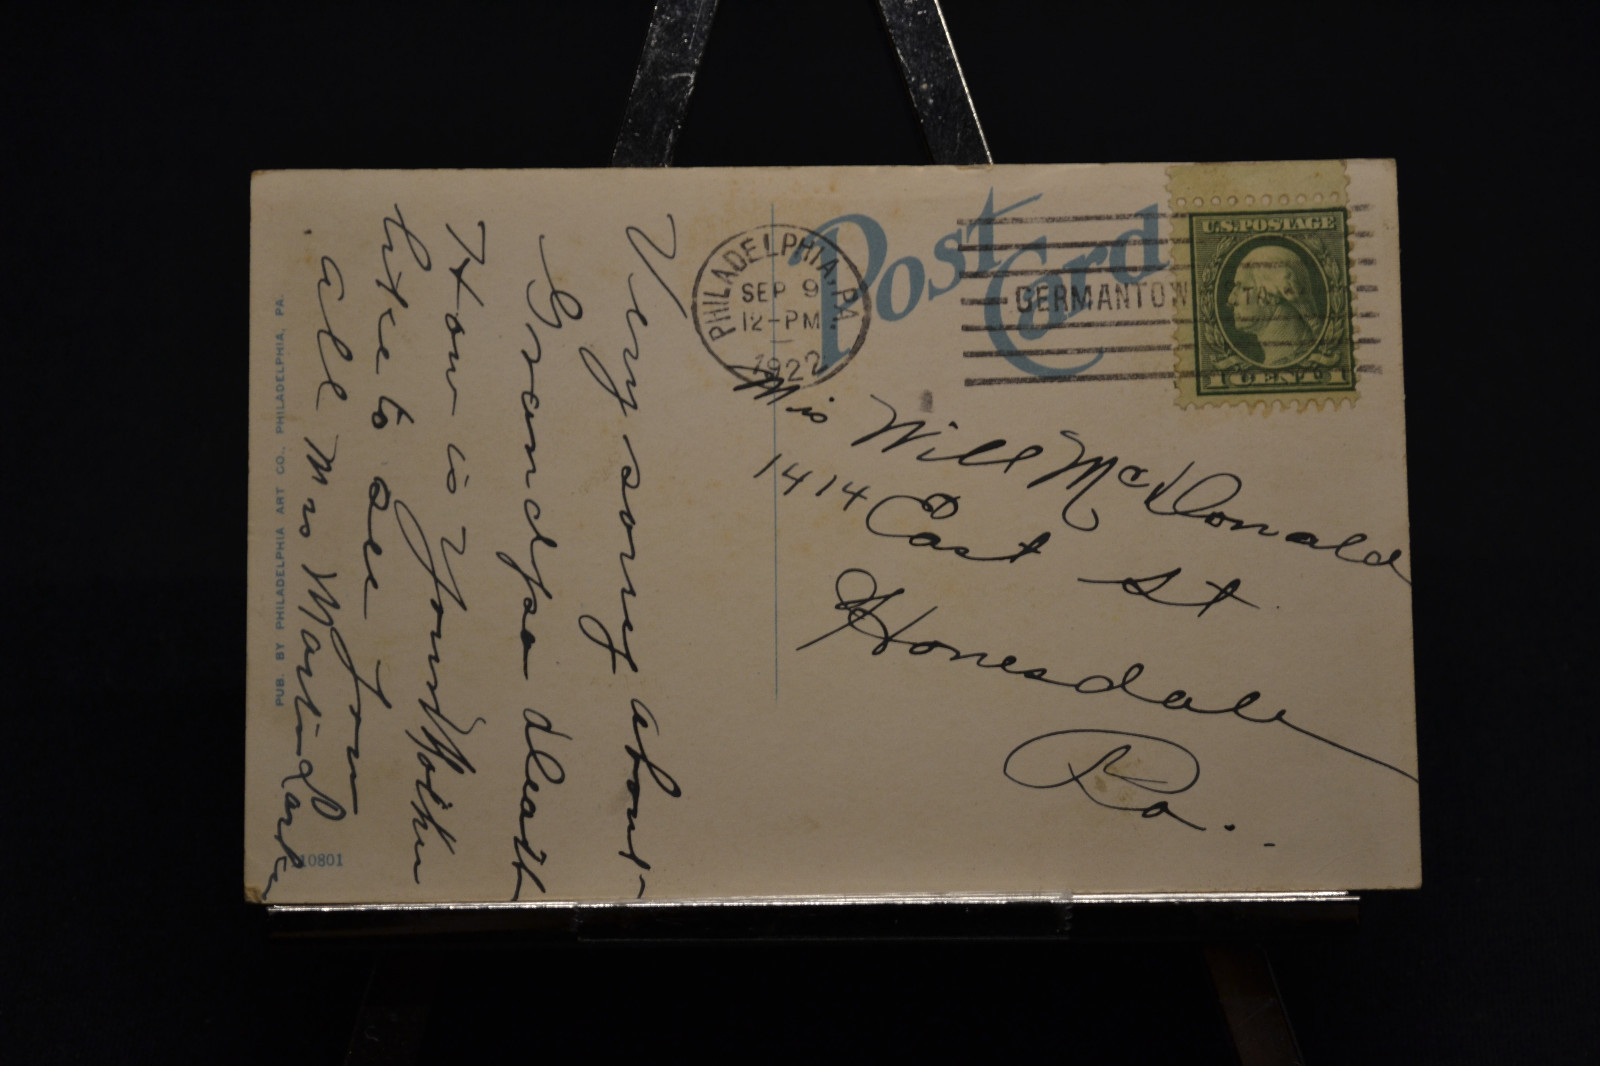 Very sorry about
Grandpa death
How is your Mother
like to see you
all Mrs Martin
PUB. BY PHILADELPHIA ART CO., PHILADELPHIA, PA.
10801
Post Card
PHILADELPHIA, PA.
SEP 9
12-PM
1922
GERMANTOWN STA.
U.S. POSTAGE
1 CENT 1
Mrs Will McDonald
1414 East St
Honesdale
Pa.